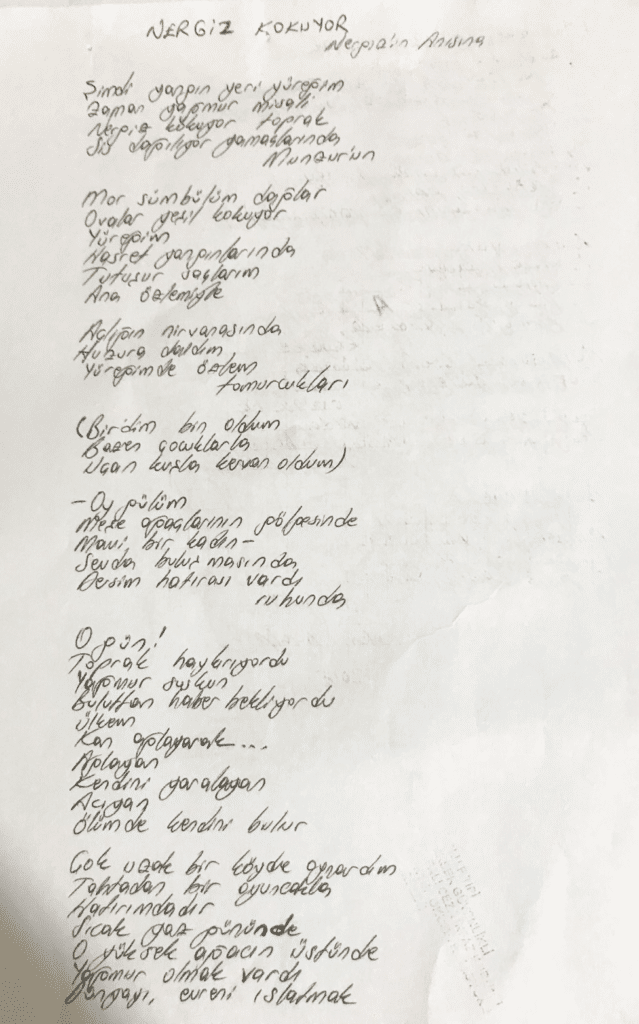 NERGİZ KOKUYOR
Nergiz'in Anısına
Şimdi yangın yeri yüreğim
Zaman yağmur misali
Nergiz kokuyor toprak
Sis dağılıyor yamaçlarında
Munzur'un
Mor sümbülüm dağlar
Ovalar yeşil kokuyor
Yüreğim
Hasret yangınlarında
Tutuşur saçlarım
Ana özlemiyle
Açlığın nirvanasında
Huzura daldım
Yüreğimde özlem
tomurcukları
(Birdim bin oldum
Bazen çocuklarla
Uçan kuşla kervan oldum)
- Oy gülüm
Meşe ağaçlarının gölgesinde
Mavi bir kadın -
Sevda buluşmasında
Dersim hatırası vardı
ruhunda
O gün!
Toprak haykırıyordu
Yağmur suskun
Buluttan haber bekliyordu
ülkem
Kan ağlayarak...
Ağlayan
Kendini yaralayan
Acıyan
Ölümde kendini bulur
Çok uzak bir köyde oynardım
Tahtadan bir oyuncakla
Hatırımdadır
Sıcak yaz gününde
O yüksek ağacın üstünde
Yağmur olmak vardı
Dünyayı, evreni ıslatmak